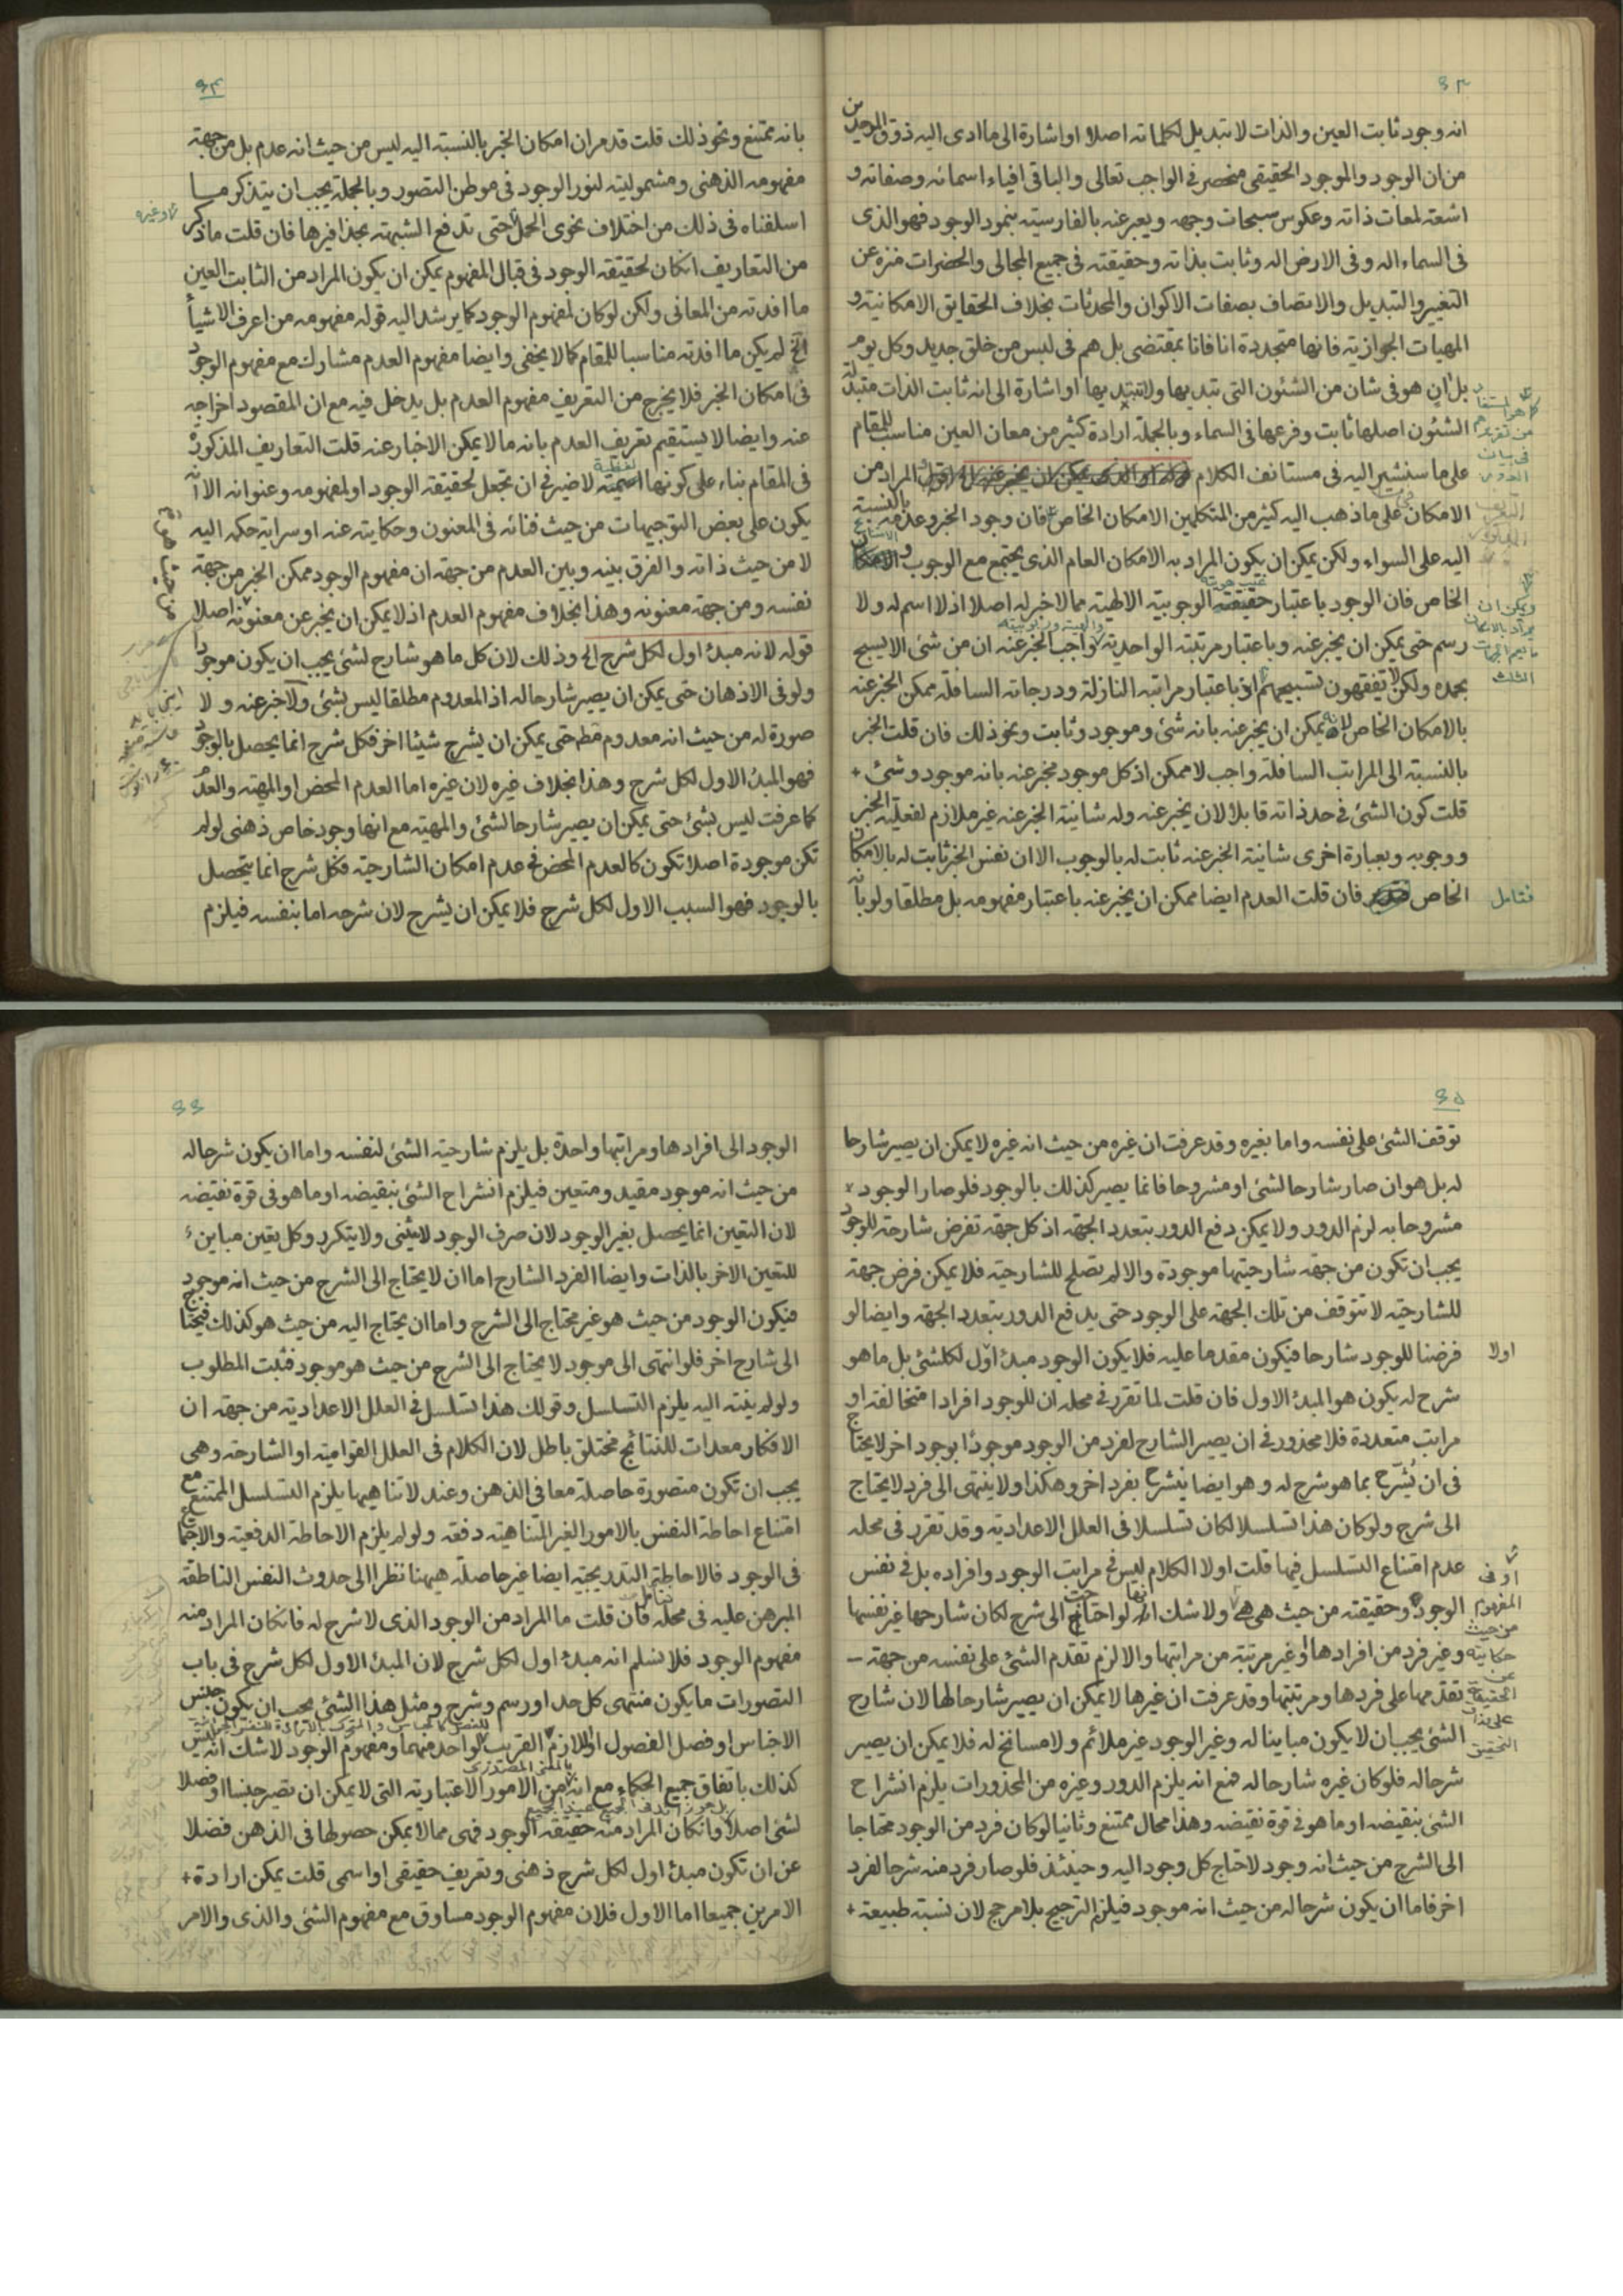 ٦٣
انه وجود ثابت العين والذات لا تبديل لكلماته اصلا او اشارة الى ما ادى اليه ذوق الموحدين
من ان الوجود والموجود الحقيقى منحصر فى الواجب تعالى والباقى افياء اسمائه وصفاته و
اشعة لمعات ذاته وعكوس سبحات وجهه ويعبر عنه بالفارسيته بنمود الوجود فهو الذى
فى السماء اله وفى الارض اله وثابت بذاته وحقيقته فى جميع المجالى والحضرات منزه عن
التغيير والتبديل والاتصاف بصفات الاكوان والمحدثات بخلاف الحقايق الامكانية و
المهيات الجوازية فانها متجددة انا فانا بمقتضى بل هم فى لبس من خلق جديد وكل يوم
بل ان هو فى شان من الشئون التى يتديها ولا يبتديها او اشارة الى انه ثابت الذات متبدلة
الشئون اصلها ثابت وفرعها فى السماء وبالجملة ارادة كثير من معان العين مناسب للمقام
على ما سنشير اليه فى مستانف الكلام قوله او الذى يمكن ان يخبر عنه الخ اقول المراد من
الامكان على ما ذهب اليه كثير من المتكلمين الامكان الخاص فان وجود الخبر وعدمه بالنسبة
اليه على السواء ولكن يمكن ان يكون المراد به الامكان العام الذى يجتمع مع الوجوب والامكان
الخاص فان الوجود باعتبار حقيقته الوجوبية الالهية مما لا خبر له اصلا اذ لا اسم له ولا
رسم حتى يمكن ان يخبر عنه وباعتبار مرتبته الواحدية واجب الخبر عنه ان من شئ الا يسبح
بحمده ولكن لا تفقهون تسبيحهم او باعتبار مراتبه النازلة ودرجاته السافلة ممكن الخبر عنه
بالامكان الخاص لانه يمكن ان يخبر عنه بانه شئ وموجود وثابت ونحو ذلك فان قلت الخبر
بالنسبة الى المراتب السافلة واجب لا ممكن اذ كل موجود مخبر عنه بانه موجود وشئ +
قلت كون الشئ فى حد ذاته قابلا لان يخبر عنه وله شانية الخبر عنه غير ملازم لفعلية الخبر
ووجوبه وبعبارة اخرى شانية الخبر عنه ثابت له بالوجوب الا ان نفس الخبر ثابت له بالامكان
الخاص فان قلت العدم ايضا ممكن ان يخبر عنه باعتبار مفهومه بل مطلقا ولو بانه
فتامل
كما هو المستفاد
ويمكن ان
يراد بالامكان
ما يعم الجهات
الثلث
٦٤
بانه ممتنع ونحو ذلك قلت قد مر ان امكان الخبر بالنسبة اليه ليس من حيث انه عدم بل من جهة
مفهومه الذهنى ومشموليته لنور الوجود فى موطن التصور وبالجملة يجب ان يتذكر ما
اسلفناه فى ذلك من اختلاف نحوى الحمل حتى تدفع الشبهة بحذافيرها فان قلت ما ذكر
من التعاريف ان كان لحقيقة الوجود فى قبال المفهوم يمكن ان يكون المراد من الثابت العين
ما افدته من المعانى ولكن لو كان لمفهوم الوجود كما يرشد اليه قوله مفهومه من اعرف الاشيأ
الخ لم يكن ما افدته مناسبا للمقام كما لا يخفى وايضا مفهوم العدم مشارك مع مفهوم الوجود
فى امكان الخبر فلا يخرج من التعريف مفهوم العدم بل يدخل فيه مع ان المقصود اخراجه
عنه وايضا لا يستقيم تعريف العدم بانه ما لا يمكن الاخبار عنه قلت التعاريف المذكورة
فى المقام بناء على كونها لفظية لا ضير فى ان تجعل لحقيقة الوجود او لمفهومه وعنوانه الا انه
يكون على بعض التوجيهات من حيث فنائه فى المعنون وحكايته عنه او سراية حكمه اليه
لا من حيث ذاته والفرق بينه وبين العدم من جهة ان مفهوم الوجود ممكن الخبر من جهة
نفسه ومن جهة معنونه وهذا بخلاف مفهوم العدم اذ لا يمكن ان يخبر عن معنونه اصلا
من حيث هو
قوله لانه مبدء اول لكل شرح الخ وذلك لان كل ما هو شارح لشئ يجب ان يكون موجودا
ولو فى الاذهان حتى يمكن ان يصير شارحا له اذ المعدوم مطلقا ليس بشئ ولا خبر عنه ولا
صورة له من حيث انه معدوم قط حتى يمكن ان يشرح شيئا اخر فكل شرح انما يحصل بالوجود
فهو المبدء الاول لكل شرح وهذا بخلاف غيره لان غيره اما العدم المحض او المهية والعدم
كما عرفت ليس بشئ حتى يمكن ان يصير شارحا لشئ والمهية مع انها وجود خاص ذهنى لو لم
تكن موجودة اصلا تكون كالعدم المحض فى عدم امكان الشارحية فكل شرح انما يتحصل
بالوجود فهو السبب الاول لكل شرح فلا يمكن ان يشرح لان شرحه اما بنفسه فيلزم
٦٥
توقف الشئ على نفسه واما بغيره وقد عرفت ان غيره من حيث انه غيره لا يمكن ان يصير شارحا
له بل هو ان صار شارحا لشئ او مشروحا فانما يصير كذلك بالوجود فلو صار الوجود ×
مشروحا به لزم الدور ولا يمكن دفع الدور بتعدد الجهة اذ كل جهة تفرض شارحة للوجود
يجب ان تكون من جهة شارحيتها موجودة والا لم تصلح للشارحية فلا يمكن فرض جهة
للشارحية لا تتوقف من تلك الجهة على الوجود حتى يدفع الدور بتعدد الجهة وايضا لو
فرضنا للوجود شارحا فيكون مقدما عليه فلا يكون الوجود مبدء اول لكلشئ بل ما هو
اولا
شرح له يكون هو المبدء الاول فان قلت لما تقرر فى محله ان للوجود افرادا متخالفة او
مراتب متعددة فلا محذور فى ان يصير الشارح لفرد من الوجود موجودا بوجود اخر لا يحتاج
فى ان يشرح بما هو شرح له وهو ايضا ينشرح بفرد اخر وهكذا ولا ينتهى الى فرد لا يحتاج
الى شرح ولو كان هذا تسلسلا لكان تسلسلا فى العلل الاعدادية وقد تقرر فى محله
عدم امتناع التسلسل فيها قلت اولا الكلام ليس فى مراتب الوجود وافراده بل فى نفس
الوجود وحقيقته من حيث هى هى ولا شك انها لو احتاجت الى شرح لكان شارحها غير نفسها
او فى
المفهوم
من حيث
حكايته
عن
الحقيقة
وغير فرد من افرادها وغير مرتبة من مراتبها والا لزم تقدم الشئ على نفسه من جهة -
تقدمها على فردها ومرتبتها وقد عرفت ان غيرها لا يمكن ان يصير شارحا لها لان شارح
الشئ يجب ان لا يكون مباينا له وغير الوجود غير ملائم ولا مسانخ له فلا يمكن ان يصير
شرحا له فلو كان غيره شارحا له فمع انه يلزم الدور وغيره من المحذورات يلزم انشراح
الشئ بنقيضه او ما هو فى قوة نقيضه وهذا محال ممتنع وثانيا لو كان فرد من الوجود محتاجا
الى الشرح من حيث انه وجود لاحتاج كل وجود اليه وحينئذ فلو صار فرد منه شرحا لفرد
اخر فاما ان يكون شرحا له من حيث انه موجود فيلزم الترجيح بلا مرجح لان نسبة طبيعة +
٦٦
الوجود الى افرادها ومراتبها واحدة بل يلزم شارحية الشئ لنفسه واما ان يكون شرحا له
من حيث انه موجود مقيد ومتعين فيلزم انشراح الشئ بنقيضه او ما هو فى قوة نقيضه
لان التعين انما يحصل بغير الوجود لان صرف الوجود لا يتثنى ولا يتكرر وكل تعين مباين
للتعين الاخر بالذات وايضا الفرد الشارح اما ان لا يحتاج الى الشرح من حيث انه موجود
فيكون الوجود من حيث هو غير محتاج الى الشرح واما ان يحتاج اليه من حيث هو كذلك فيحتاج
الى شارح اخر فلو انتهى الى موجود لا يحتاج الى الشرح من حيث هو موجود فثبت المطلوب
ولو لم ينته اليه يلزم التسلسل وقولك هذا تسلسل فى العلل الاعدادية من جهة ان
الافكار معدات للنتائج مختلق باطل لان الكلام فى العلل القوامية او الشارحة وهى
يجب ان تكون متصورة حاصلة معا فى الذهن وعند لا تناهيها يلزم التسلسل الممتنع مع
امتناع احاطة النفس بالامور الغير المتناهية دفعة ولو لم يلزم الاحاطة الدفعية والاجتماع
فى الوجود فالاحاطة التدريجية ايضا غير حاصلة هيهنا نظرا الى حدوث النفس الناطقة
المبرهن عليه فى محله فتامل فان قلت ما المراد من الوجود الذى لا شرح له فان كان المراد منه
مفهوم الوجود فلا نسلم انه مبدء اول لكل شرح لان المبدء الاول لكل شرح فى باب
التصورات ما يكون منتهى كل حد او رسم وشرح ومثل هذا الشئ يجب ان يكون جنس
الاجناس او فصل الفصول او اللازم القريب لواحد منهما ومفهوم الوجود لا شك انه ليس
كذلك باتفاق جميع الحكماء مع انه بالمعنى المصدرى من الامور الاعتبارية التى لا يمكن ان تصير جنسا او فصلا
لشئ اصلا وان كان المراد منه حقيقة الوجود فهى مما لا يمكن حصولها فى الذهن فضلا
عن ان تكون مبدء اول لكل شرح ذهنى وتعريف حقيقى او اسمى قلت يمكن ارادة +
الامرين جميعا اما الاول فلان مفهوم الوجود مساوق مع مفهوم الشئ والذى والامر